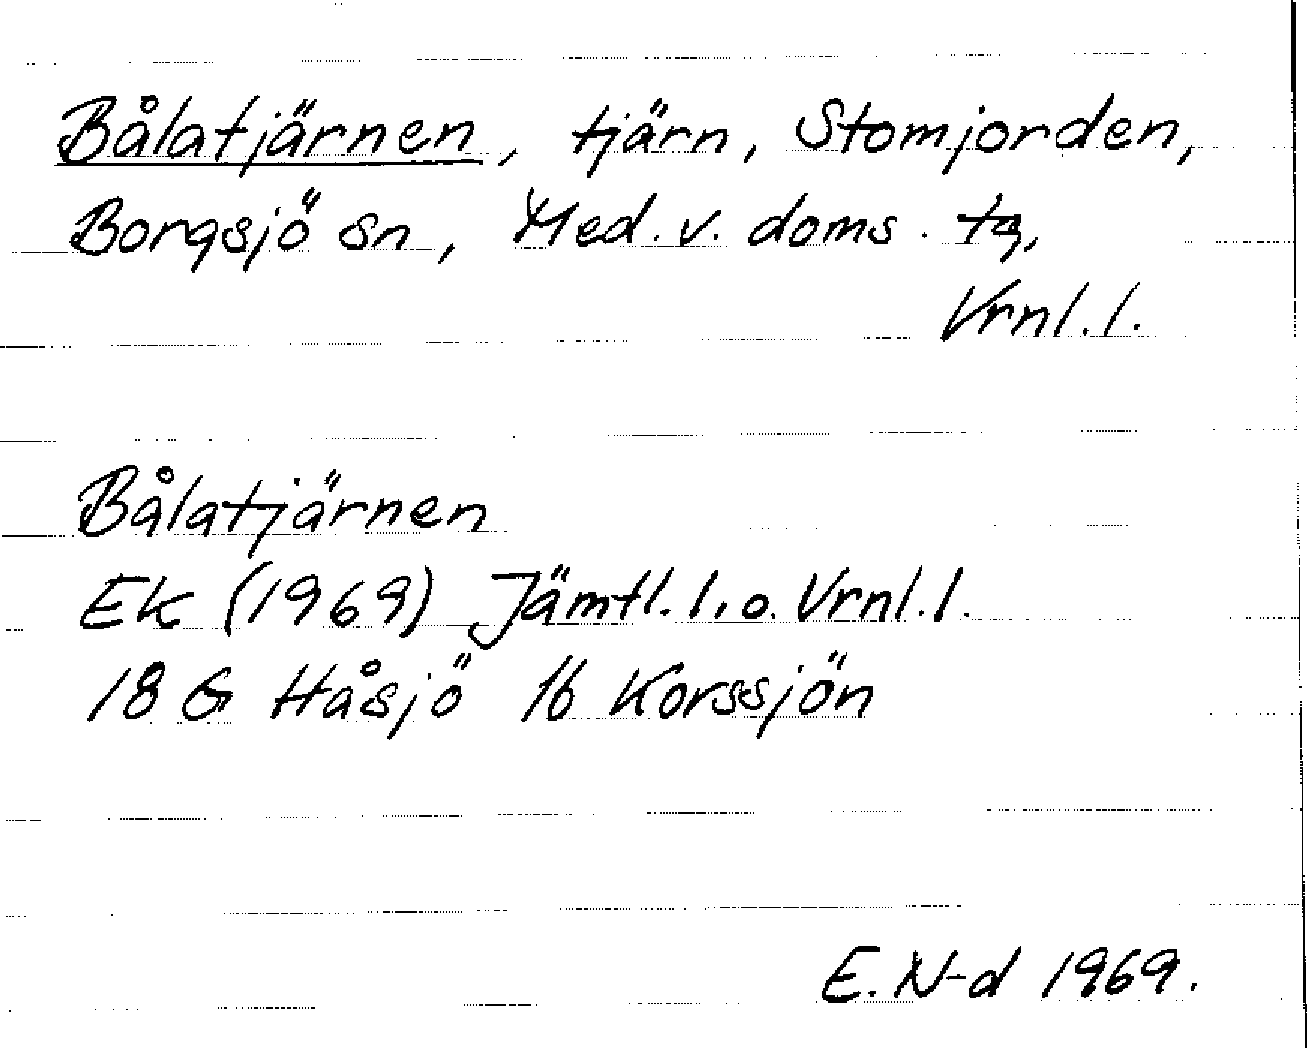 Bålatjärnen, tjärn, Stomjorden,
Borgsjö sn, Med. v. doms. tg,
Vrnl. l.
Bålatjärnen
Ek (1969) Jämtl. l. o. Vrnl. l.
18 G Håsjö 1b Korssjön
E. N-d 1969.